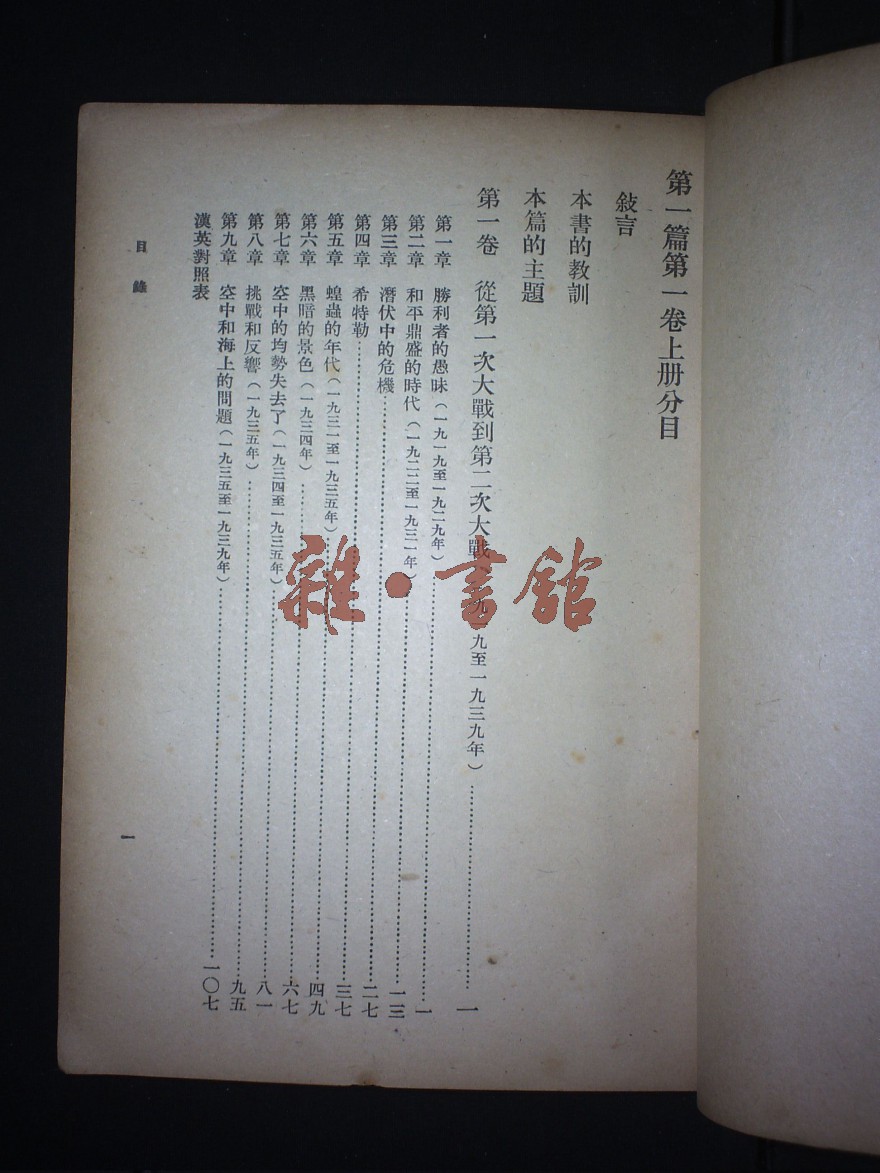 第一篇第一卷上册分目
敍言
本書的教訓
本篇的主題
第一卷 從第一次大戰到第二次大戰（一九一九至一九三九年）……一
第一章 勝利者的愚昧（一九一九至一九二九年）……一
第二章 和平鼎盛的時代（一九二二至一九三一年）……一三
第三章 潛伏中的危機……二七
第四章 希特勒……三七
第五章 蝗蟲的年代（一九三一至一九三五年）……四九
第六章 黑暗的景色（一九三四年）……六七
第七章 空中的均勢失去了（一九三四至一九三五年）……八一
第八章 挑戰和反響（一九三五年）……九五
第九章 空中和海上的問題（一九三五至一九三九年）……一〇七
漢英對照表
目錄
一
雜·書館